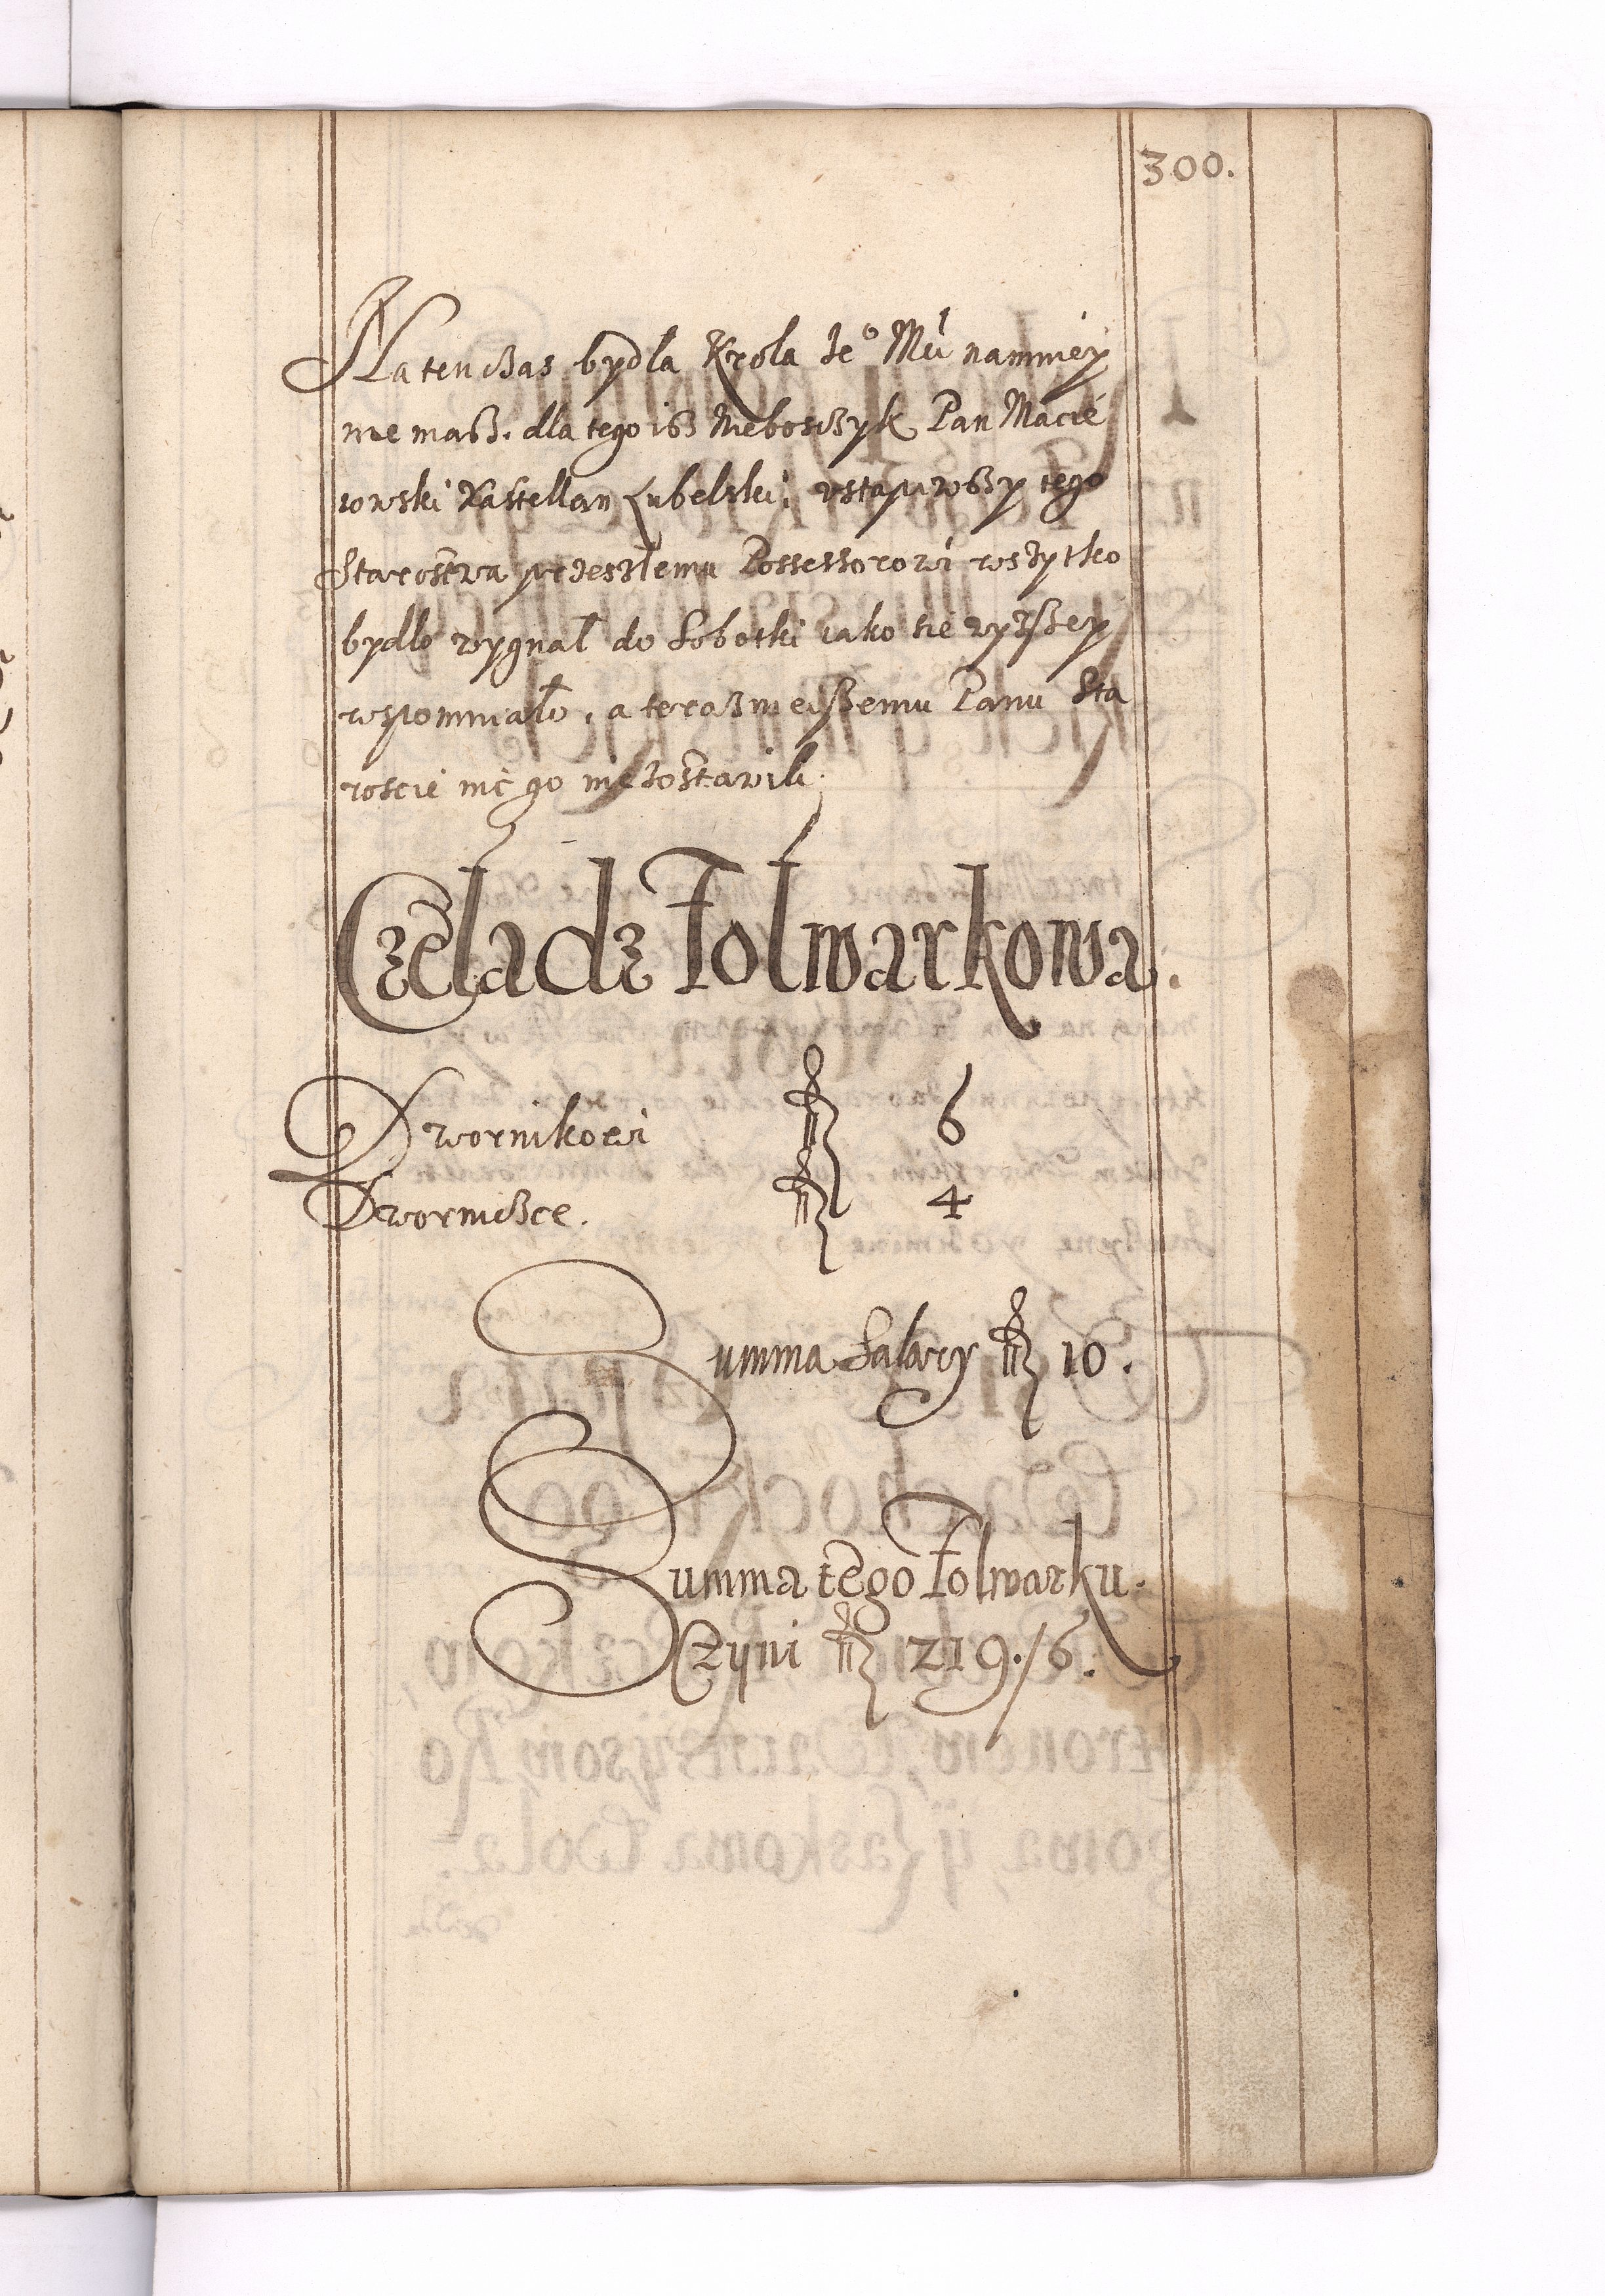 300.
Na ten czas bydła Krola Je° Mci namniey
nie masz. dla tego isz Nieboszczyk Pan Macie
iowski Kastellan Lubelski, vstąpiwszy tego
Starostwa przeszłemu Possessorowi wszytko
bydło wygnał do Sobotki iako sie wyższey
wspomniało, a teraznieiszemu Panu Sta
roscie nic go nie zostawili.
Czeladz Folwarkowa.
Dwornikowi 6
Dworniczce. 4
Summa Salary 10.
Summa tego Folwarku
Czyni 219./6.